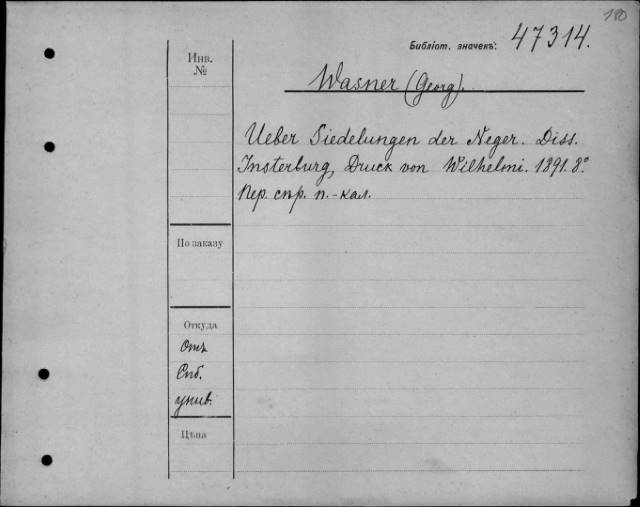 180
Библіот. значекъ: 47314.
Инв.
№
Wasner (Georg).
Ueber Siedelungen der Neger. Diss.
Insterburg, Druck von Wilhelmi. 1891. 8°
Пер. спр. п.-кал.
По заказу
Откуда
Отъ
Спб.
унив.
Цѣна